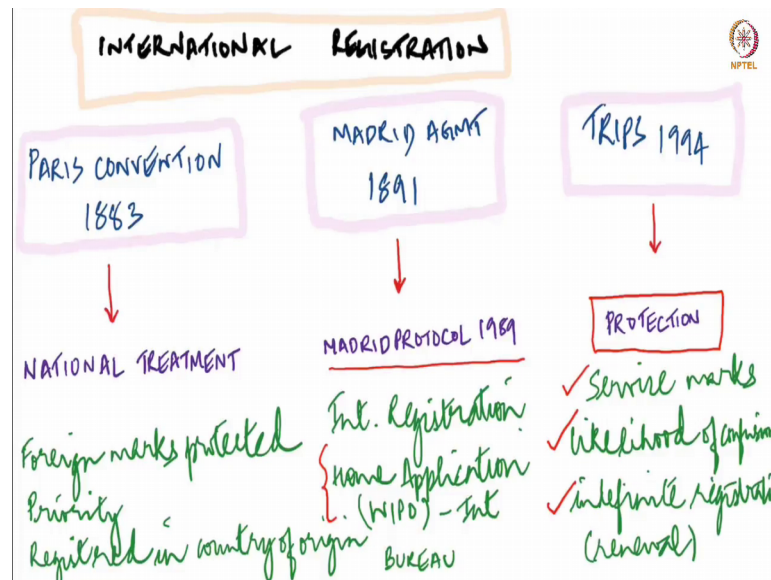 INTERNATIONAL REGISTRATION
NPTEL
PARIS CONVENTION
1883
NATIONAL TREATMENT
Foreign marks protected
Priority
Registered in country of origin
MADRID AGMT
1891
MADRID PROTOCOL 1989
Int. Registration
Home Application
(WIPO) - Int
BUREAU
TRIPS 1994
PROTECTION
Service marks
Likelihood of confusion
indefinite registrati
(renewal)